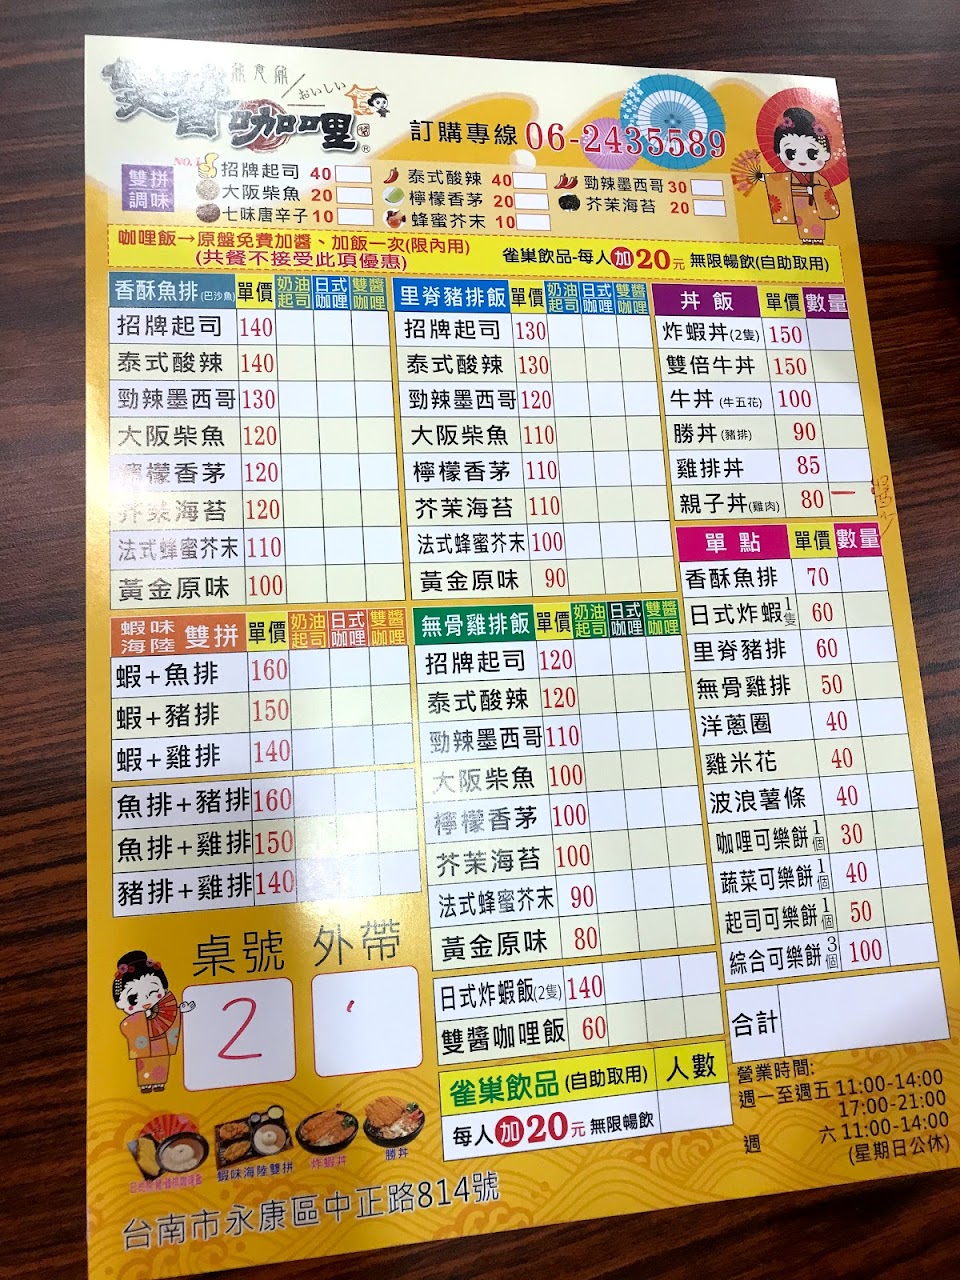 雙醬咖哩
おいしい
訂購專線 06-2435589
雙拼調味
NO.1
招牌起司 40
泰式酸辣 40
勁辣墨西哥 30
大阪柴魚 20
檸檬香茅 20
芥茉海苔 20
七味唐辛子 10
蜂蜜芥末 10
咖哩飯→原盤免費加醬、加飯一次(限內用)
(共餐不接受此項優惠)
雀巢飲品-每人加20元 無限暢飲(自助取用)
香酥魚排(巴沙魚) 單價 奶油起司 日式咖哩 雙醬咖哩
招牌起司 140
泰式酸辣 140
勁辣墨西哥 130
大阪柴魚 120
檸檬香茅 120
芥茉海苔 120
法式蜂蜜芥末 110
黃金原味 100
蝦味海陸 雙拼 單價 奶油起司 日式咖哩 雙醬咖哩
蝦+魚排 160
蝦+豬排 150
蝦+雞排 140
魚排+豬排 160
魚排+雞排 150
豬排+雞排 140
里脊豬排飯 單價 奶油起司 日式咖哩 雙醬咖哩
招牌起司 130
泰式酸辣 130
勁辣墨西哥 120
大阪柴魚 110
檸檬香茅 110
芥茉海苔 110
法式蜂蜜芥末 100
黃金原味 90
無骨雞排飯 單價 奶油起司 日式咖哩 雙醬咖哩
招牌起司 120
泰式酸辣 120
勁辣墨西哥 110
大阪柴魚 100
檸檬香茅 100
芥茉海苔 100
法式蜂蜜芥末 90
黃金原味 80
日式炸蝦飯(2隻) 140
雙醬咖哩飯 60
雀巢飲品(自助取用) 人數
每人加20元 無限暢飲
丼飯 單價 數量
炸蝦丼(2隻) 150
雙倍牛丼 150
牛丼(牛五花) 100
勝丼(豬排) 90
雞排丼 85
親子丼(雞肉) 80 一
單點 單價 數量
香酥魚排 70
日式炸蝦1隻 60
里脊豬排 60
無骨雞排 50
洋蔥圈 40
雞米花 40
波浪薯條 40
咖哩可樂餅1個 30
蔬菜可樂餅1個 40
起司可樂餅1個 50
綜合可樂餅3個 100
合計
桌號 外帶
2
蝦味海陸雙拼
炸蝦丼
勝丼
營業時間:
週一至週五 11:00-14:00
17:00-21:00
週 六 11:00-14:00
(星期日公休)
台南市永康區中正路814號